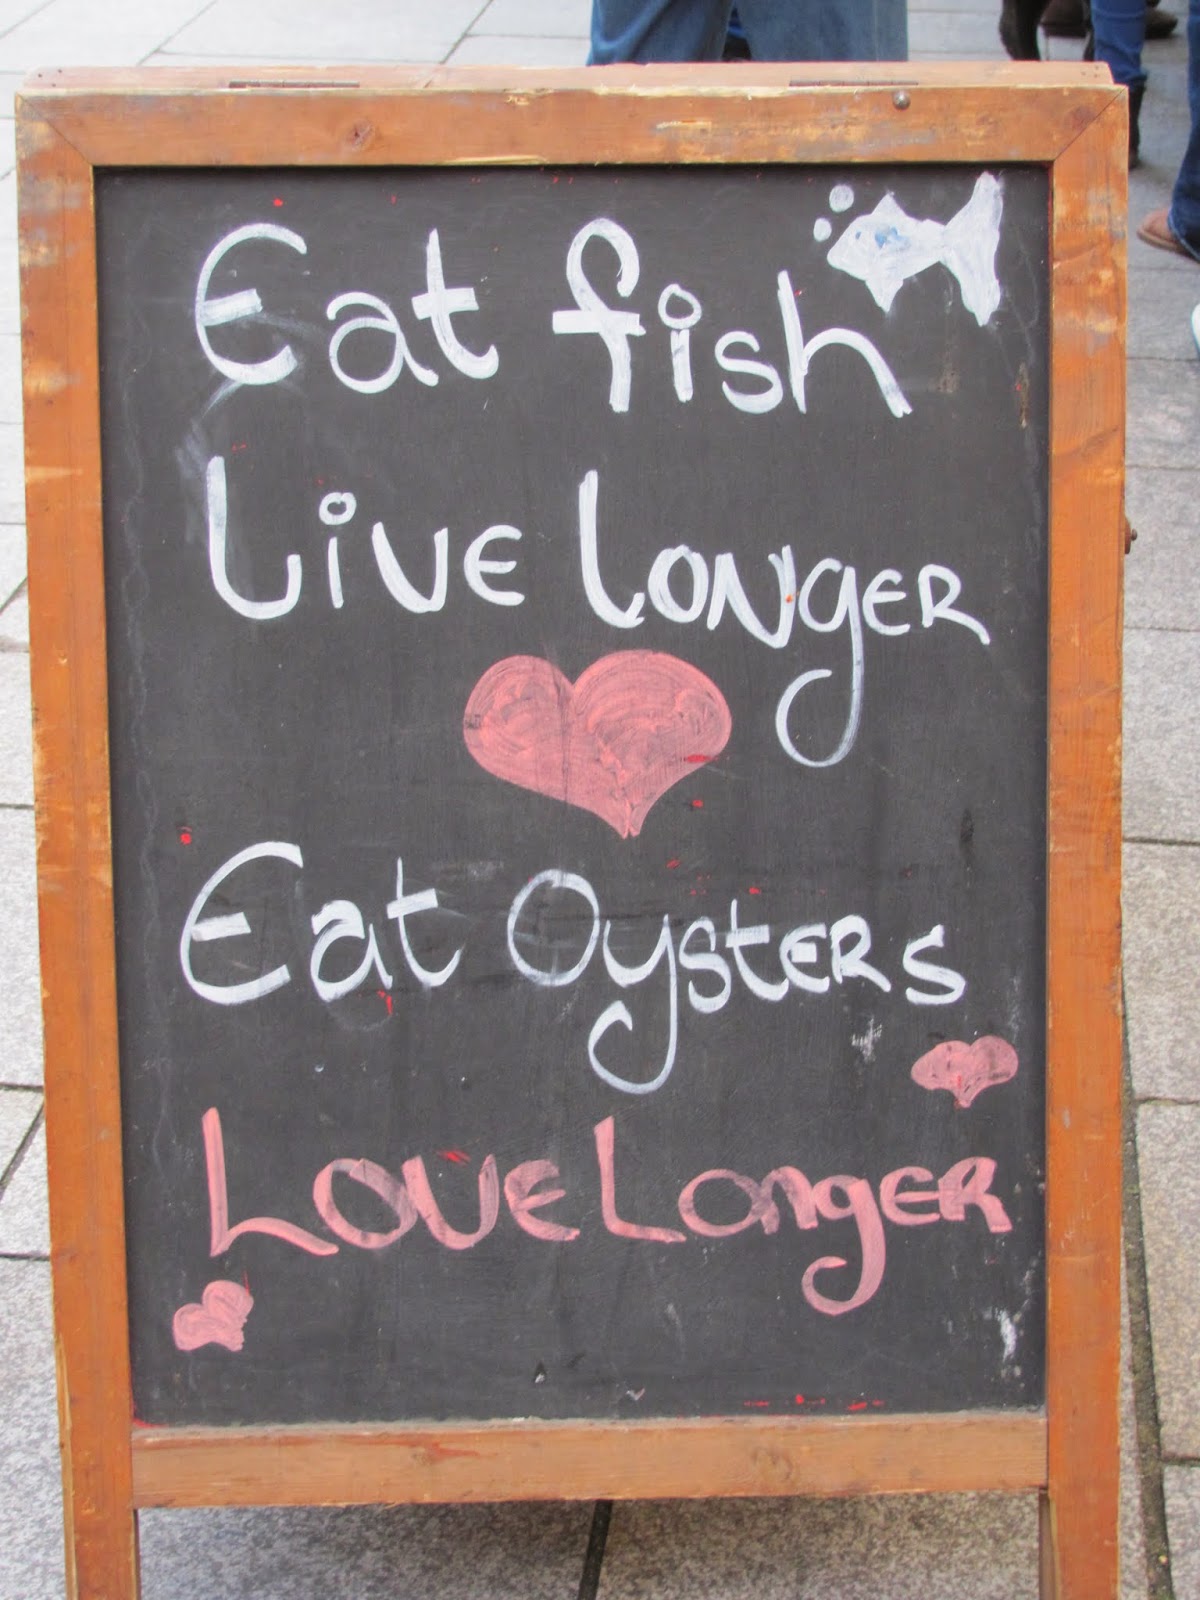 Eat fish
Live Longer
Eat Oysters
Love Longer